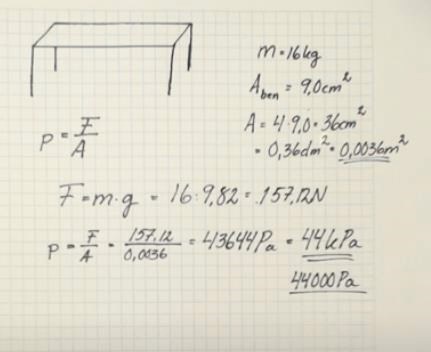 m = 16kg
A_ben = 9,0cm²
A = 4·9,0 = 36cm²
= 0,36dm² = 0,0036m²
P = F/A
F = m·g = 16·9,82 = 157,12N
P = F/A = 157,12/0,0036 = 43644Pa = 44kPa
44000Pa